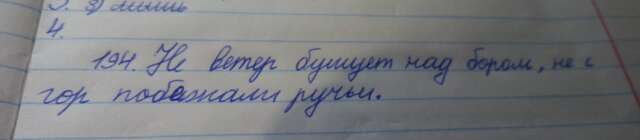 3. з) лишь
4.
194. Не ветер бушует над бором, не с
гор побежали ручьи.